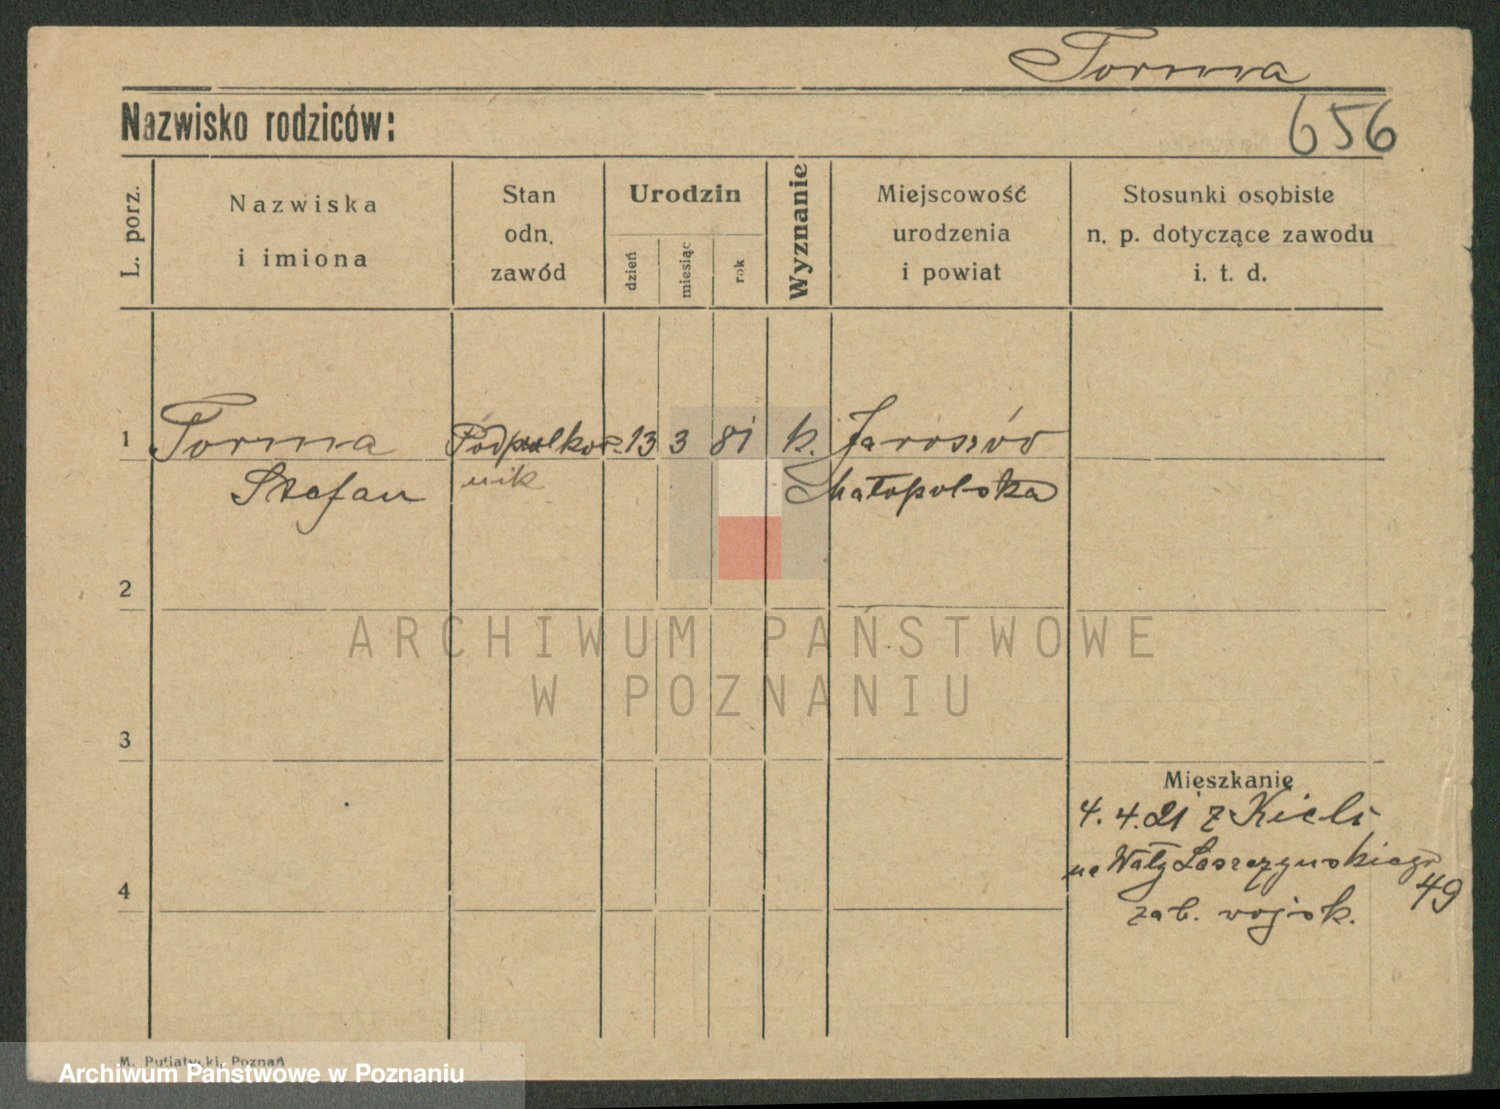 Torma
Nazwisko rodziców:
656
L. porz.
Nazwiska
i imiona
Stan
odn.
zawód
Urodzin
dzień
miesiąc
rok
Wyznanie
Miejscowość
urodzenia
i powiat
Stosunki osobiste
n. p. dotyczące zawodu
i. t. d.
1 Torma Podpułkow- 13 3 81 k. Jaroszów
Stefan nik Małopolska
2
3
4
ARCHIWUM PAŃSTWOWE
W POZNANIU
Mieszkanie
4. 4. 21 z Kielc
na Wały Leszczyńskiego
49
zab. wojsk.
M. Putiatycki, Poznań
Archiwum Państwowe w Poznaniu